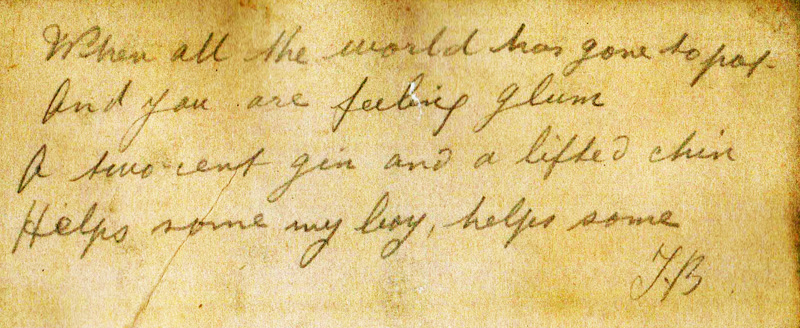 When all the world has gone to pot
And you are feeling glum
A two-cent gin and a lifted chin
Helps some my boy, helps some
J.B